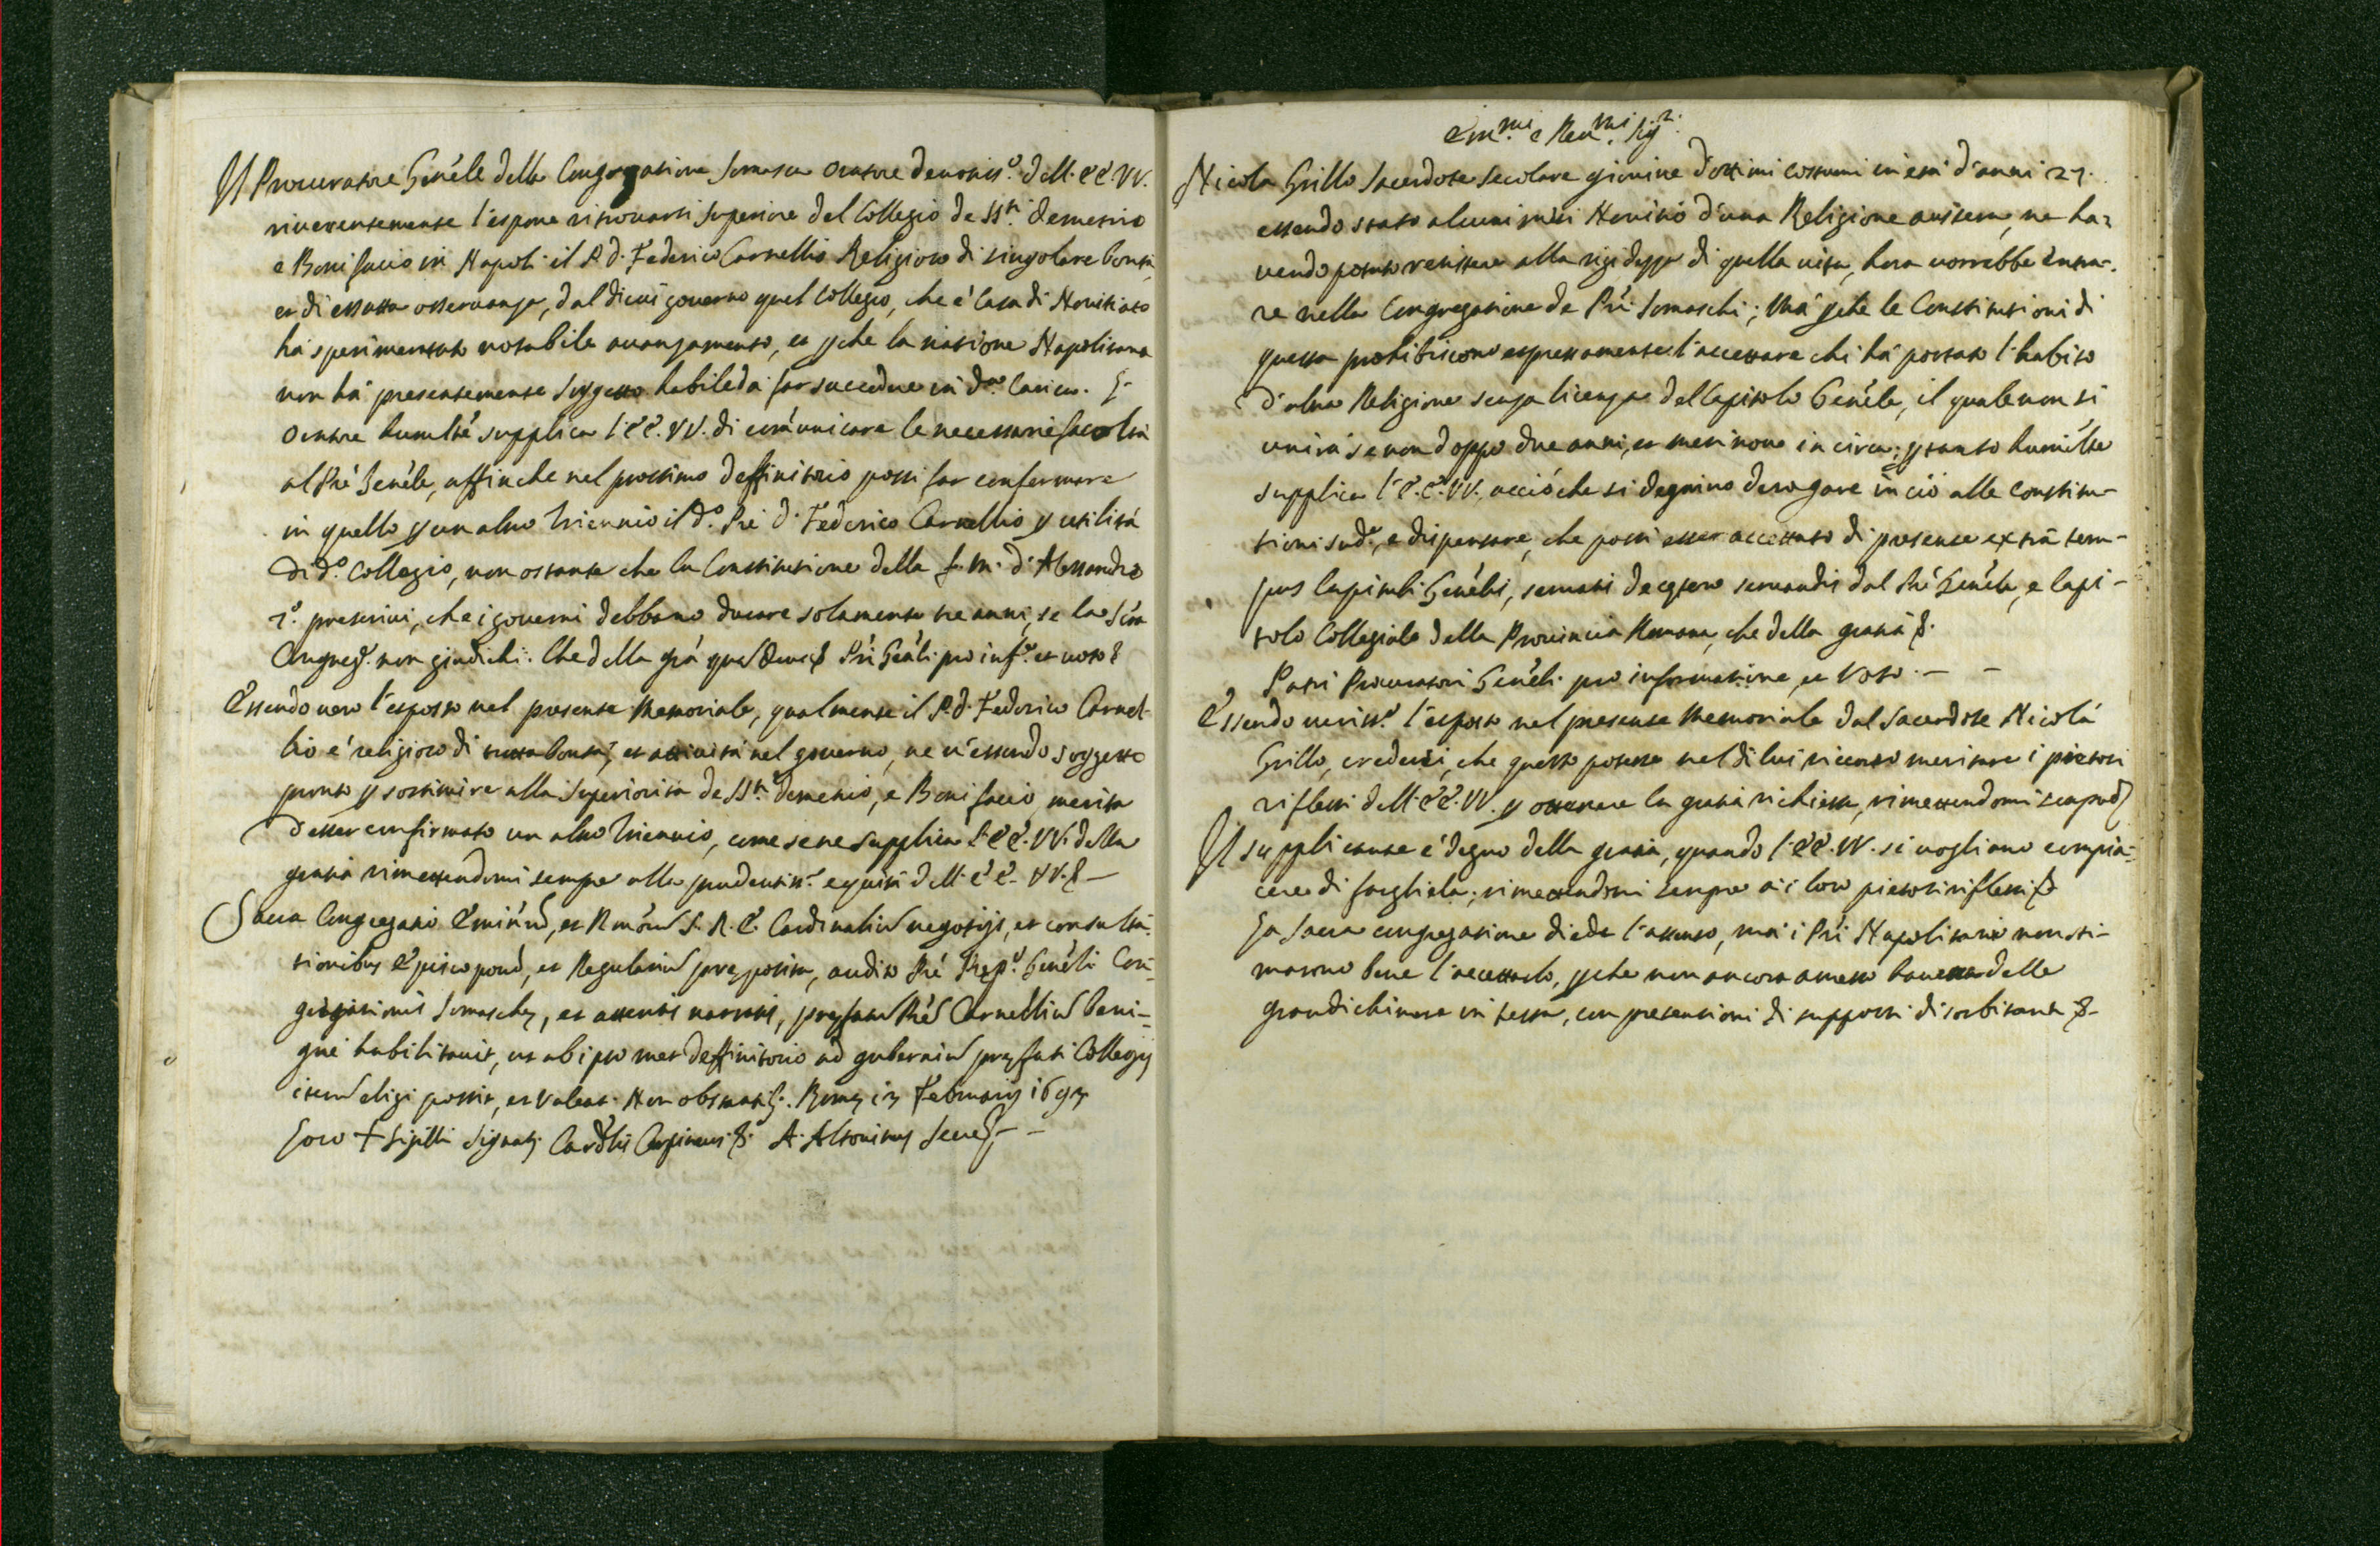 Il Procuratore Gen̄ele della Congregatione Somasca Oratore deuotis.º dell' EE VV.
riuerentemente l'espone ritrouarsi Superiore del Collegio de SS.ti Demetrio
e Bonifacio in Napoli il P. D. Federico Carnellio Religioso di singolare bontà,
et di essatta osseruanza, dal di cui gouerno quel Collegio, che è Casa di Nouitiato
hà sperimentato notabile auanzamento, et pche la natione Napolitana
non hà presentemente Suggetto habile da far succedere in d.º Carico. L'
Oratore humilm̃te supplica l'EE. VV. di com̃unicare le necessarie facoltà
al Pr̃e Gen̄ele, affinche nel prossimo Deffinitorio possi far confermare
in quello p un altro triennio il d.º Pr̃e D. Federico Carnellio p utilità
di d.º Collegio, non ostante che la Constitutione della f. m. d'Alessandro
7.º prescriui, che i gouerni debbano durare solamente tre anni, se la S̃ra
Congreg.ne non giudichi. Che della grã quas Deus Pr̃i Gen̄ali pro inf.ne et uoto &
Essendo uero l'esposto nel presente Memoriale, qualmente il P. D. Federico Carnel-
lio è religioso di tutta bontà, et attiuità nel gouerno, ne u'essendo soggetto
pronto p sostituire alla Superiorità de SS.ti Demetrio, e Bonifacio, merita
d'esser confirmato un altro triennio, come se ne supplica l'EE. VV. della
gratia rimettendomi sempre alla prudentiss.ma equità dell' EE. VV. & —
Sacra Congregatio Emin̄m, et Rmõrum S. R. E. Cardinalium negotijs, et consulta-
tionibus Episcoporum, et Regularium preposita, audito Pr̃e Prep.º Gen̄ali Con-
gregationis Somaschę, et attentis narratis, prefatum Prẽm Carnellium beni-
gnè habilitauit, ut ab ipsomet deffinitorio ad gubernium prefati Collegij
iterum eligi possit, et ualeat. Non obstantib. Romę 13 Februarij 1693
Loco + Sigilli Signat. Card̃lis Carpineus &. A. Altouitus Secret. — —
Em.mi e Reu.mi Sig.ri
Nicola Grillo Sacerdote Secolare giouine d'ottimi costumi in età d'anni 27.
essendo stato alcuni mesi Nouitio d'una Religione austera, ne ha-
uendo potuto resistere alla rigidezza di quella uita, hora uorrebbe entra-
re nella Congregatione de Pr̃i Somaschi; Mà pche le Constitutioni di
questa prohibiscono espressamente l'accettare chi hà portato l'habito
d'altra Religione senza licenza del Capitolo Gen̄ele, il quale non si
unirà se non doppo due anni, et mesi noue in circa; ptanto humilm̃te
supplica l'E.E. VV., acciò che si degnino derogare in ciò alle Constitu-
tioni sud.e, e dispensare, che possi esser accettato di presente extrà tem-
pus Capituli Gen̄elis, seruatis de cętero seruandis dal Pr̃e Gen̄ele, e Capi-
tolo Collegiale della Prouincia Romana, che della gratia &.
Patri Procuratori Gen̄eli pro informatione, et Voto. — —
Essendo ueriss.º l'esposto nel presente Memoriale dal Sacerdote Nicolà
Grillo, crederei, che questo potesse nel di lui ricorso meritare i pietosi
riflessi dell' EE. VV. p ottenere la gratia richiesta, rimettendomi sempre &
Il supplicante è degno della gratia, quando l'EE. VV. si uogliano compia-
cere di fargliela; rimettendomi sempre a i loro pietosi riflessi &
La Sacra congregatione diede l'assenso, mà i Pr̃i Napolitani non sti-
marono bene l'accettarlo, pche non ancora ammesso haueua delle
grandi chimere in testa, con pretensioni di supposti disorbitanti &